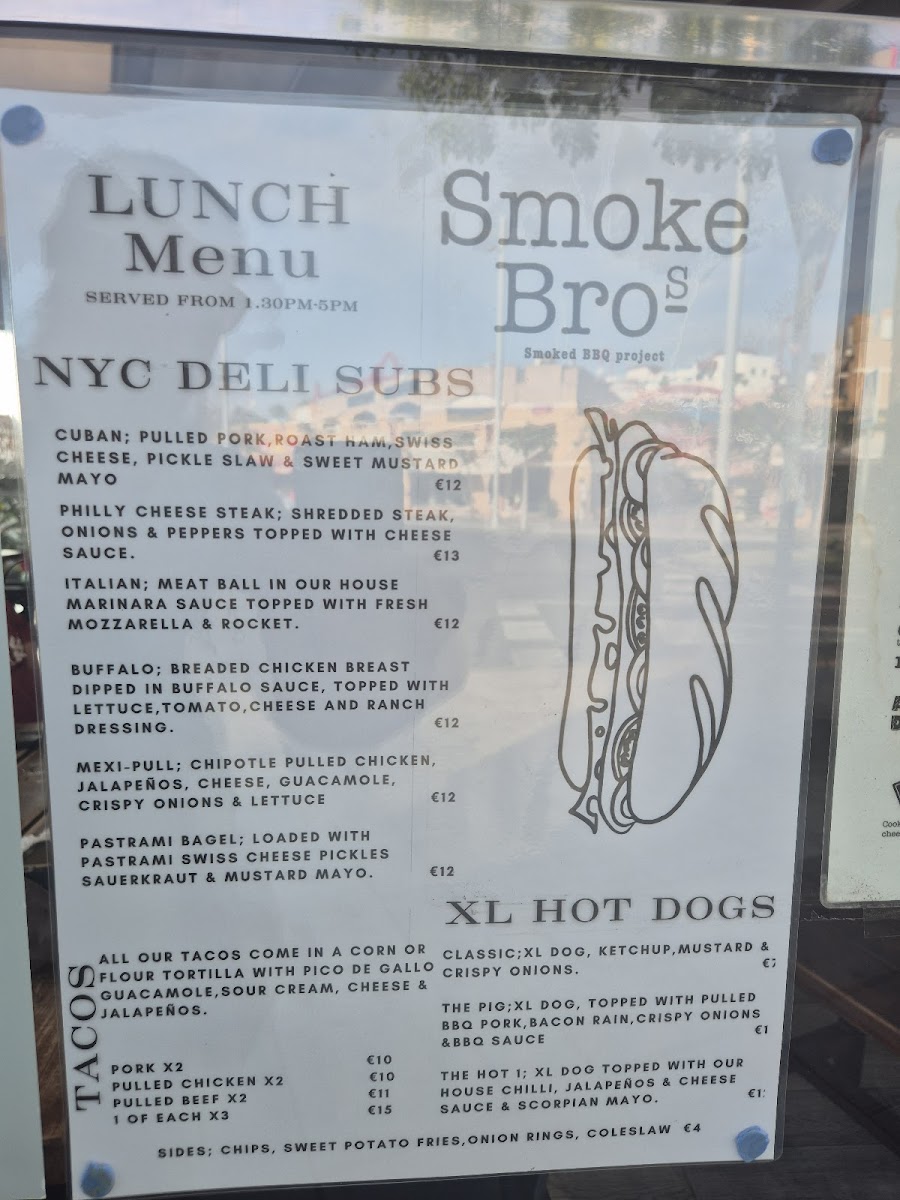 LUNCH
Menu
SERVED FROM 1.30PM-5PM
Smoke
Bros
Smoked BBQ project
NYC DELI SUBS
CUBAN; PULLED PORK,ROAST HAM,SWISS
CHEESE, PICKLE SLAW & SWEET MUSTARD
MAYO €12
PHILLY CHEESE STEAK; SHREDDED STEAK,
ONIONS & PEPPERS TOPPED WITH CHEESE
SAUCE. €13
ITALIAN; MEAT BALL IN OUR HOUSE
MARINARA SAUCE TOPPED WITH FRESH
MOZZARELLA & ROCKET. €12
BUFFALO; BREADED CHICKEN BREAST
DIPPED IN BUFFALO SAUCE, TOPPED WITH
LETTUCE,TOMATO,CHEESE AND RANCH
DRESSING. €12
MEXI-PULL; CHIPOTLE PULLED CHICKEN,
JALAPEÑOS, CHEESE, GUACAMOLE,
CRISPY ONIONS & LETTUCE €12
PASTRAMI BAGEL; LOADED WITH
PASTRAMI SWISS CHEESE PICKLES
SAUERKRAUT & MUSTARD MAYO. €12
TACOS
ALL OUR TACOS COME IN A CORN OR
FLOUR TORTILLA WITH PICO DE GALLO
GUACAMOLE,SOUR CREAM, CHEESE &
JALAPEÑOS.
PORK X2 €10
PULLED CHICKEN X2 €10
PULLED BEEF X2 €11
1 OF EACH X3 €15
XL HOT DOGS
CLASSIC;XL DOG, KETCHUP,MUSTARD &
CRISPY ONIONS.
THE PIG;XL DOG, TOPPED WITH PULLED
BBQ PORK,BACON RAIN,CRISPY ONIONS
&BBQ SAUCE
THE HOT 1; XL DOG TOPPED WITH OUR
HOUSE CHILLI, JALAPEÑOS & CHEESE
SAUCE & SCORPIAN MAYO.
SIDES; CHIPS, SWEET POTATO FRIES,ONION RINGS, COLESLAW €4